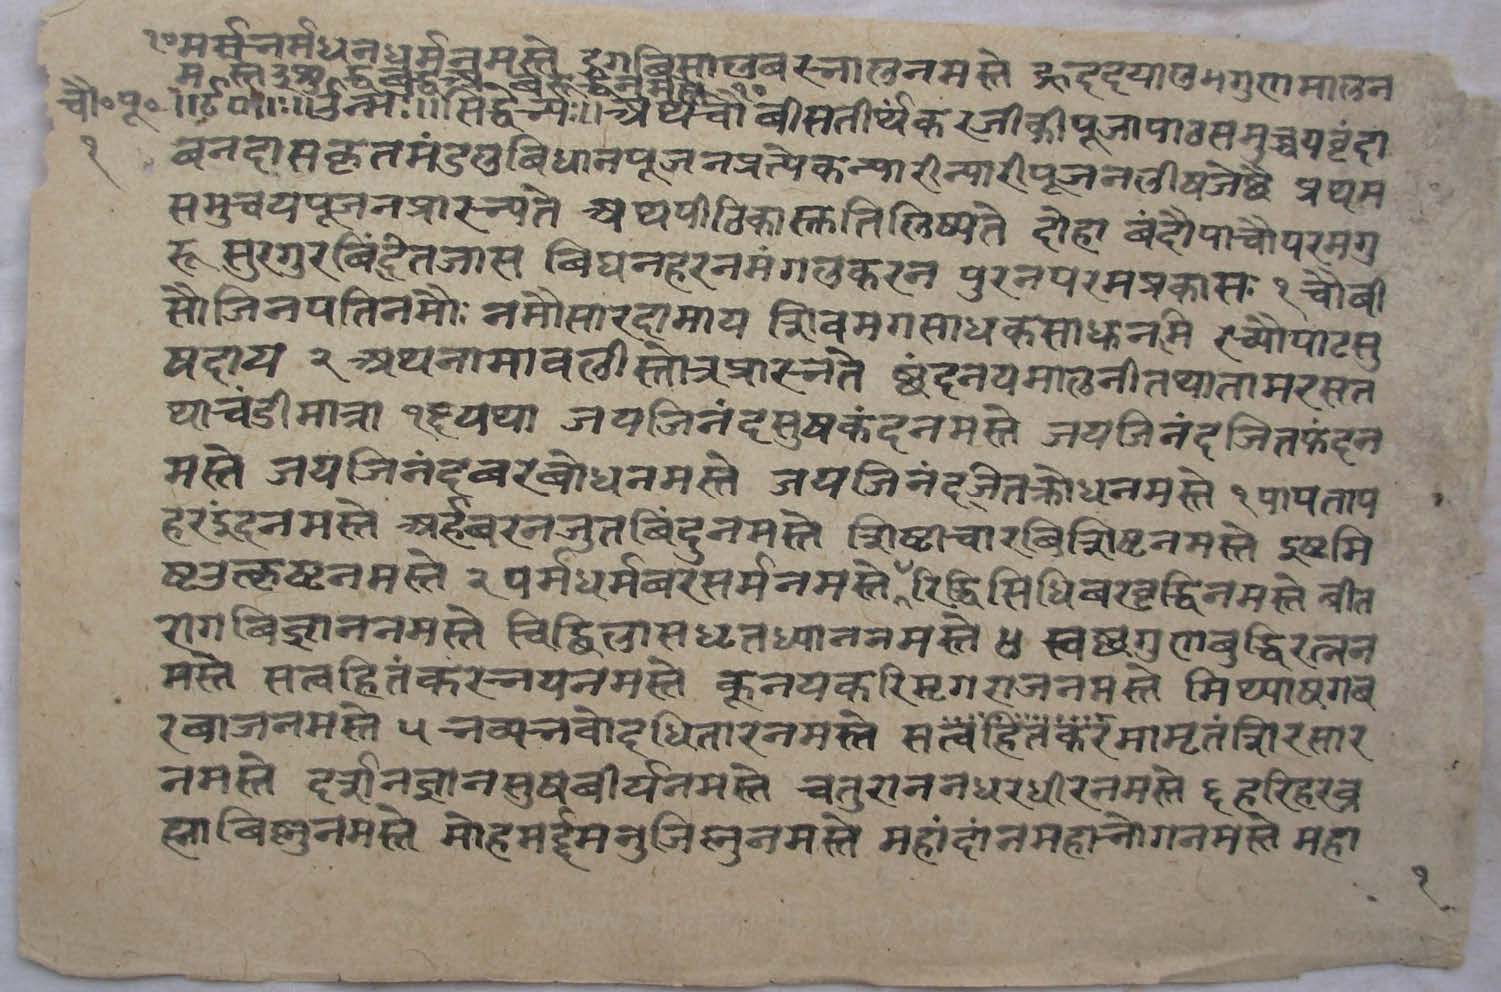 मर्मभर्मधनधर्मनमस्ते दृगबिसालबरनालनमस्ते ह्रददयालगुणमालन
चौ॰पू॰ ॥र्द॰॥ः॥उंनमः॥सिद्धेभ्यः॥अथचौबीसतीर्थंकरजीकीपूजापाठसमुच्चयवृंदा
१ बनदासकृतमंडलबिधानपूजनप्रत्येकन्यारीन्यारीपूजनलीषजेछै प्रथम
समुच्चयपूजनप्रारभ्यते अथपीठिकास्तुतिलिष्यते दोहा बंदौपाचौपरमगु
रू सुरगुरबिंदतजास बिघनहरनमंगलकरन पुरनपरमप्रकासः १ चौबी
सौजिनपतिनमौः नमौसारदामाय शिवमगसाधकसाधनमि रच्यौपाटसु
षदाय २ अथनामावलीस्तोत्रप्रारभ्नते छंदनयमालनीतथातामरसत
थाचंडीमात्रा १६ यथा जयजिनंदसुषकंदनमस्ते जयजिनंदजितफंदन
मस्ते जयजिनंदबरबोधनमस्ते जयजिनंदजीतक्रोधनमस्ते १ पापताप
हरइंदनमस्ते अर्हबरनजुतबिंदुनमस्ते शिष्टाचारबिशिष्टनमस्ते इष्टमि
ष्टउत्कृष्टनमस्ते २ पर्मधर्मबरसर्मनमस्ते रिद्धिसिधिबरवृद्धिनमस्ते बीत
रागबिज्ञाननमस्ते चिद्बिलासधृतध्याननमस्ते ४ स्वछगुणबुद्धिरत्नन
मस्ते सत्वहितंकरभयनमस्ते कूनयकरिमृगराजनमस्ते मिथ्याषगब
रबाजनमस्ते ५ भव्यभवोदधितारनमस्ते सत्वंहितंकरंमामृतंशिरसार
नमस्ते दर्शनज्ञानसुषबीर्यनमस्ते चतुराननधरधीरनमस्ते ६ हरिहरब्र
ह्माबिष्णुनमस्ते मोहमर्द्दमनुजिस्नुनमस्ते महांदांनमहाभोगनमस्ते महा
१